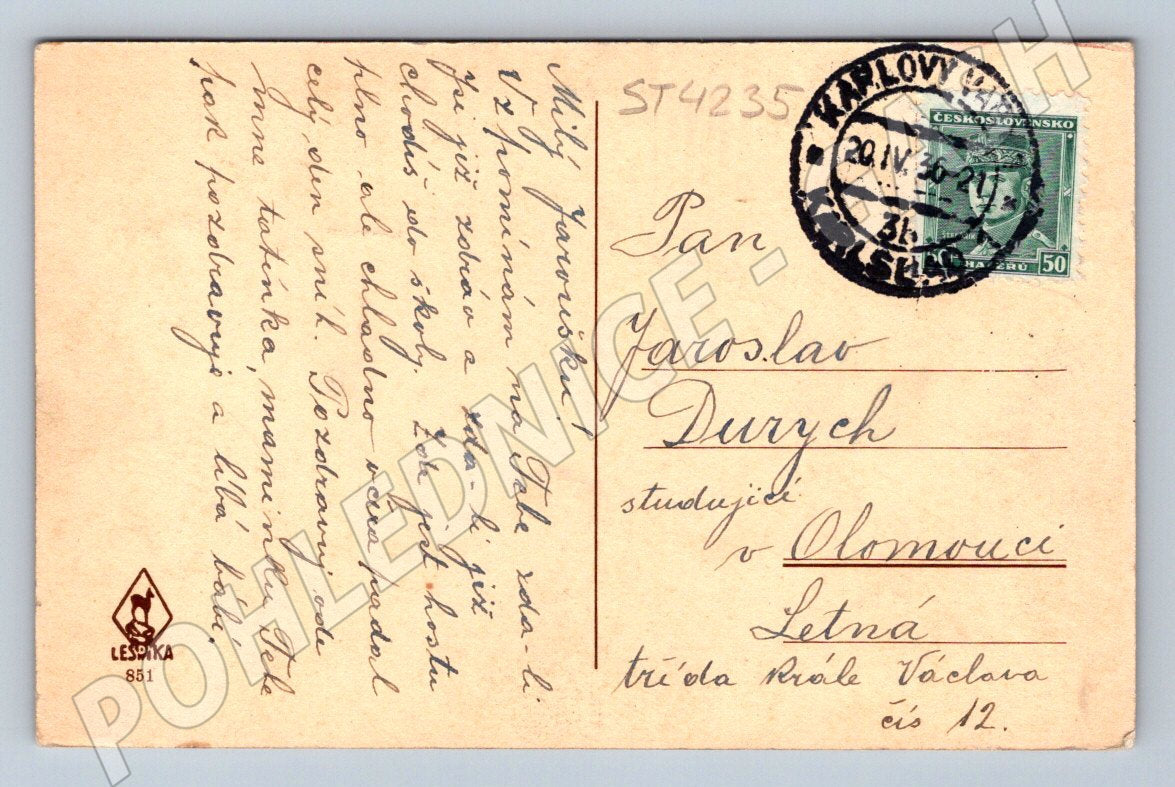 Milý Jaroušku!
Vzpomínám na Tebe zda-li
jsi již zdráv a zda-li již
chodíš do školy. Zde jest hostů
plno ale chladno včera padal
celý den sníh. Pozdravuj ode
mne tatínka, maminku, Tebe
pak pozdravuje a líbá bábi.
LESUTKA
851
ST4235
KARLOVY VARY
20.IV.36-21
3h
KARLSBAD
ČESKOSLOVENSKO
ŠTEFÁNIK
50 HALÉŘŮ 50
Pan
Jaroslav
Durych
studující
v Olomouci
Letná
třída krále Václava
čís 12.
POHLEDNICE -